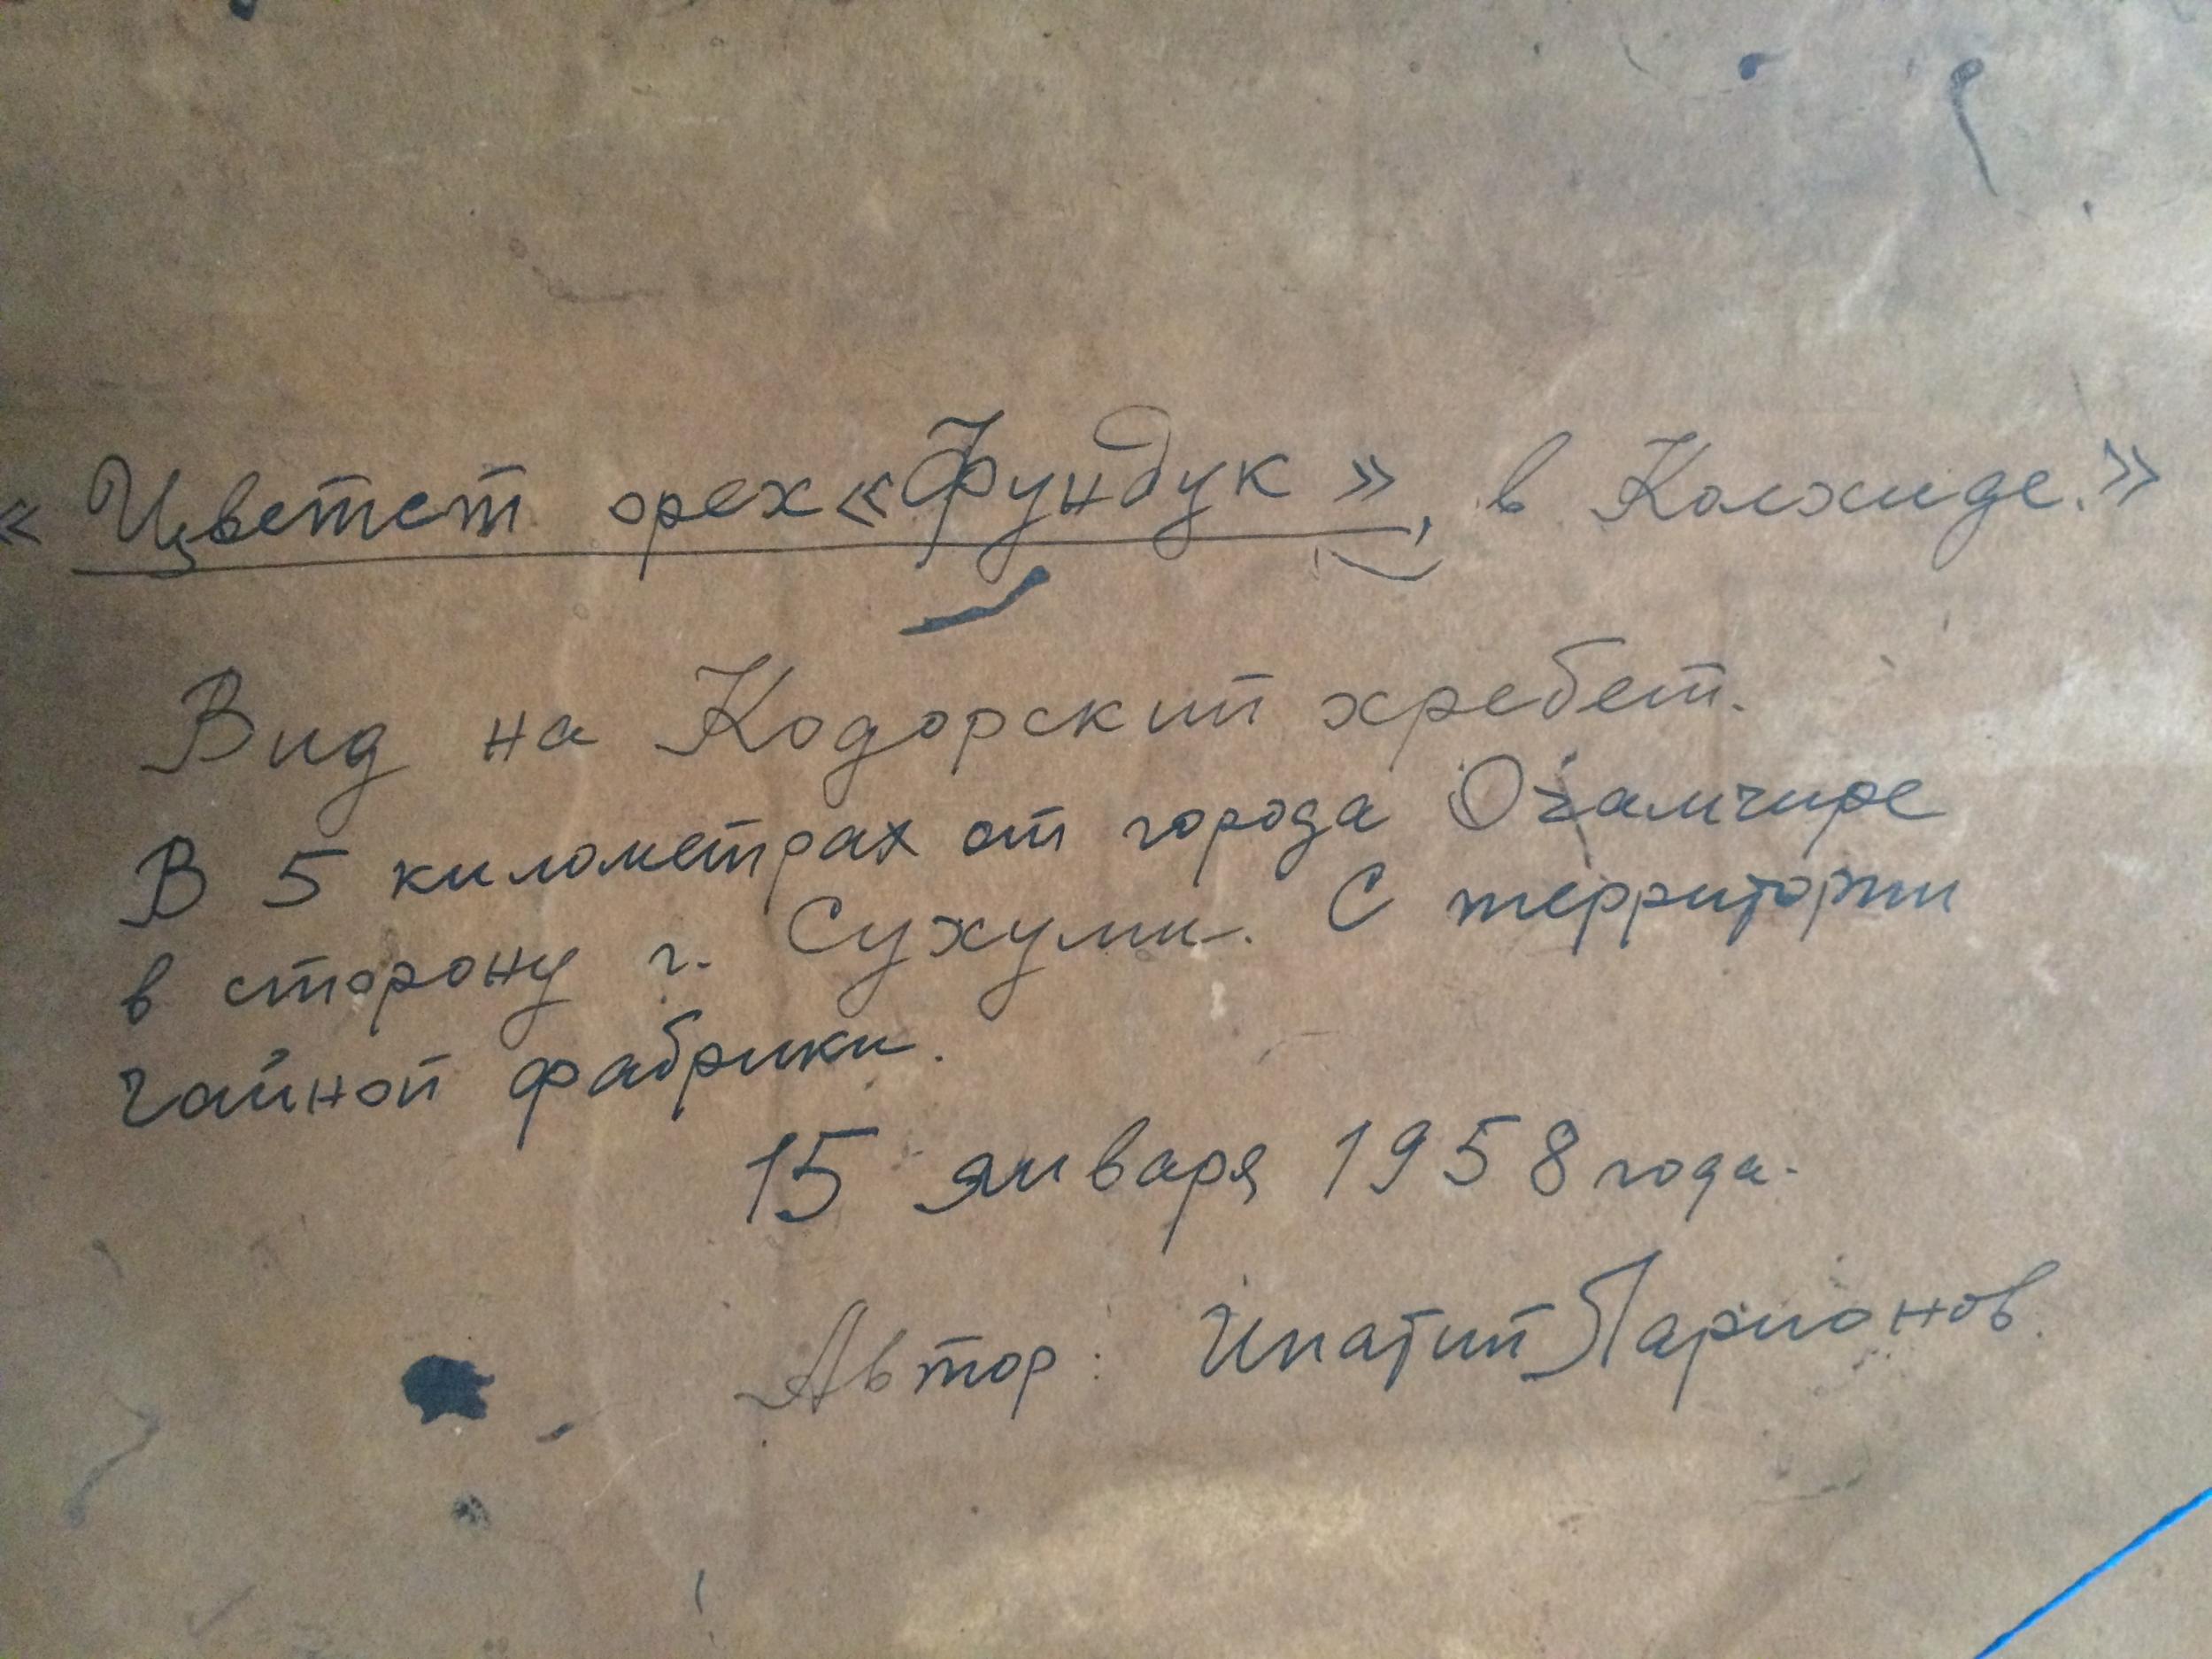 « Цветет орех «Фундук», в Колхиде.»
Вид на Кодорский хребет.
В 5 километрах от города Очамчире
в сторону г. Сухуми. С территории
чайной фабрики.
15 января 1958 года.
Автор: Ипатий Ларионов.